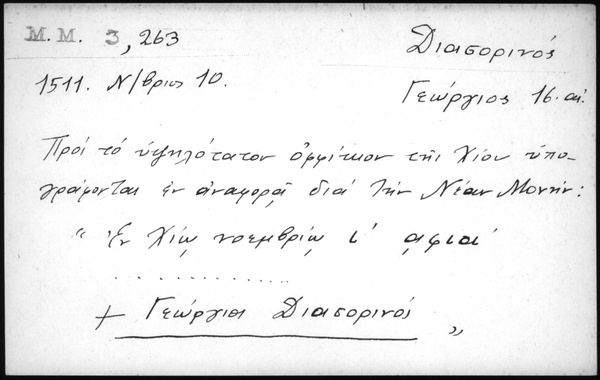 M. M. 3, 263
Διασορινός
1511. Ν/βριος 10.
Γεώργιος 16. αἰ.
Πρὸς τὸ ὑψηλότατον ὀφφίκιον τῆς Χίου ὑπο-
γράφονται ἐν ἀναφορᾷ διὰ τὴν Νέαν Μονήν:
" Ἐν Χίῳ νοεμβρίῳ ι΄ αφια΄
. . . . . . . . . . . . .
+ Γεώργιος Διασορινός "